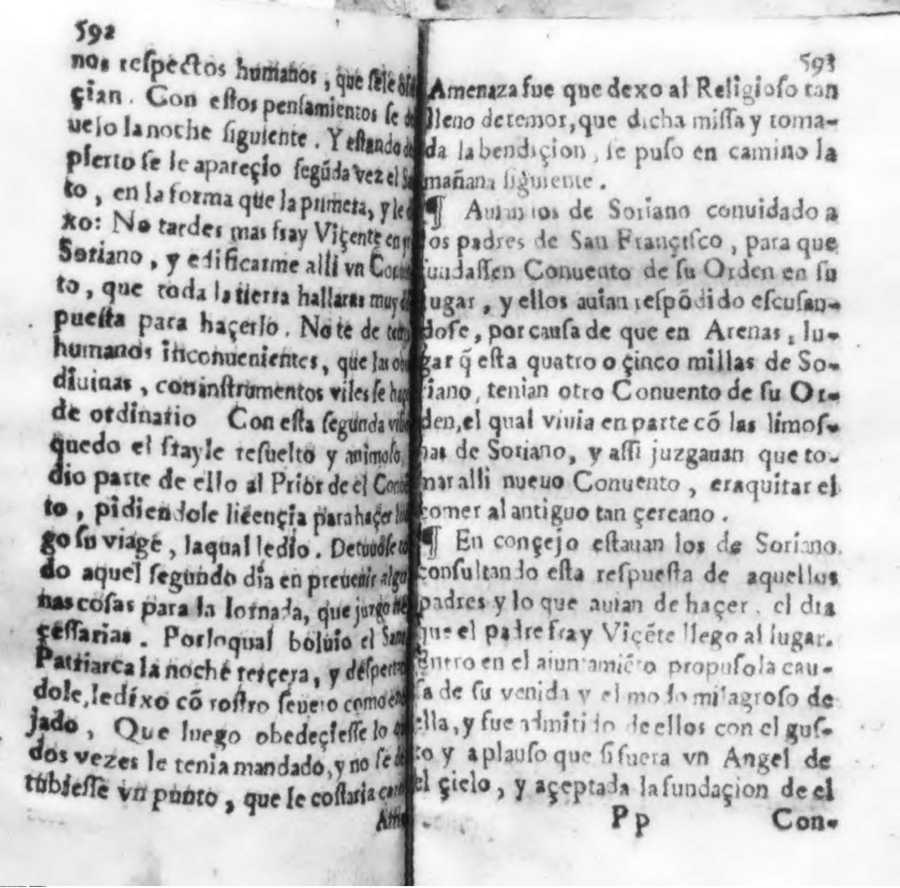 592
nos respectos humanos, que se le
çian. Con estos pensamientos se
uejo la noche siguiente. Y estando
pierto se le apareçio segūda vez el
to, en la forma que la primera, y le
xo: No tardes mas fray Viçente en
Soriano, y edificarme alli vn
to, que toda la tierra hallaras muy
puesta para haçerlo. No te de
humanos inconuenientes, que las
diuinas, con instrumentos viles se
de ordinario Con esta segunda
quedo el frayle resuelto y animoso,
dio parte de ello al Prior de el
to, pidiendole liçençia para haçer
go su viage, laqual ledio. Detuuose
do aquel segundo dia en preuenir
nas cosas para la Iornada, que
çessarias. Porloqual boluio el
Patriarca la noche terçera, y
dole, ledixo cō rostro seuero como
jado, Que luego obedeçiesse lo
dos vezes le tenia mandado, y no se
tubiesse vn punto, que le costaria
593
Amenaza fue que dexo al Religioso tan
lleno detemor, que dicha missa y toma-
da la bendiçion, se puso en camino la
mañana siguiente.
¶ Auian los de Soriano conuidado a
los padres de San Françisco, para que
fundassen Conuento de su Orden en su
lugar, y ellos auian respōdido escusan-
dose, por causa de que en Arenas, lu-
gar q̄ esta quatro o çinco millas de So-
riano, tenian otro Conuento de su Or-
den, el qual viuia en parte cō las limos-
nas de Soriano, y assi juzgauan que to-
mar alli nueuo Conuento, eraquitar el
comer al antiguo tan çercano.
¶ En conçejo estauan los de Soriano,
consultando esta respuesta de aquellos
padres y lo que auian de haçer, el dia
que el padre fray Viçēte llego al lugar.
Entro en el aiuntamiēto propuso la cau-
sa de su venida y el modo milagroso de
ella, y fue admitido de ellos con el gus-
to y aplauso que si fuera vn Angel de
el çielo, y açeptada la fundaçion de el
Pp Con-